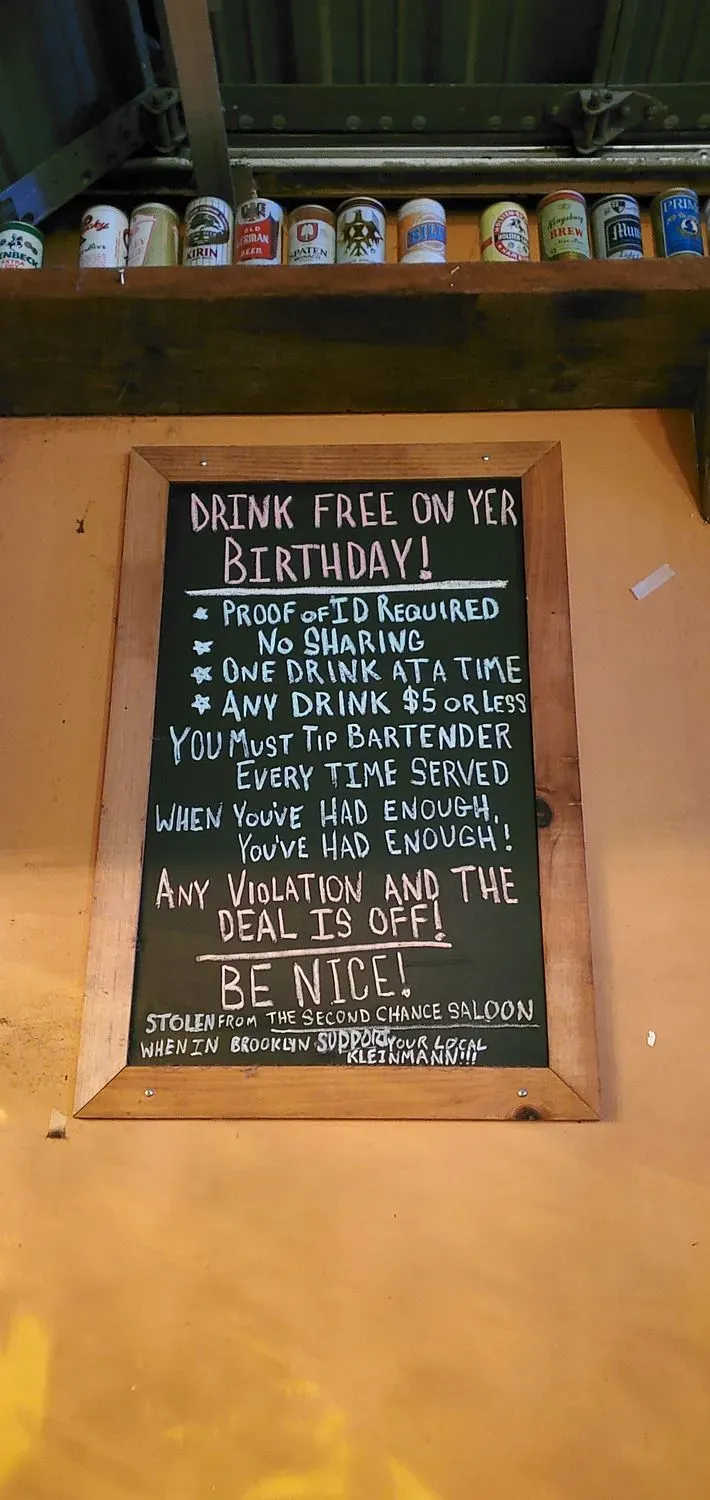 KIRIN
OLD
GERMAN
BEER
SPATEN
Kingsbury
BREW
DRINK FREE ON YER
BIRTHDAY!
* PROOF OF ID REQUIRED
* NO SHARING
* ONE DRINK AT A TIME
* ANY DRINK $5 OR LESS
YOU MUST TIP BARTENDER
EVERY TIME SERVED
WHEN YOU'VE HAD ENOUGH,
YOU'VE HAD ENOUGH!
ANY VIOLATION AND THE
DEAL IS OFF!
BE NICE!
STOLEN FROM THE SECOND CHANCE SALOON
WHEN IN BROOKLYN SUPPORT YOUR LOCAL
KLEINMANN!!!